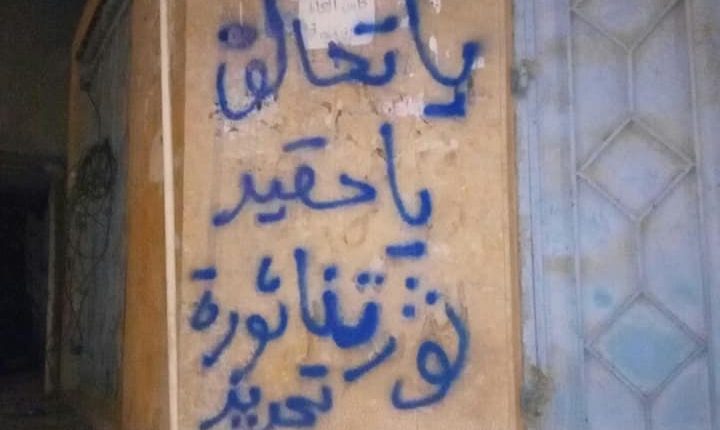 يا تحالف
يا حقيد
ثورتنا ثورة
تحرير